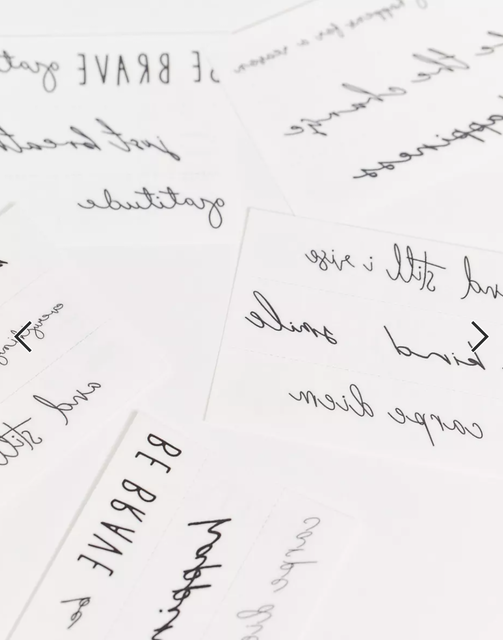 happens for a reason
BE BRAVE
the change
just breath
happiness
gratitude
and still i rise
smile
kind
carpe diem
everything
and still
BE BRAVE
be
happin
carpe die